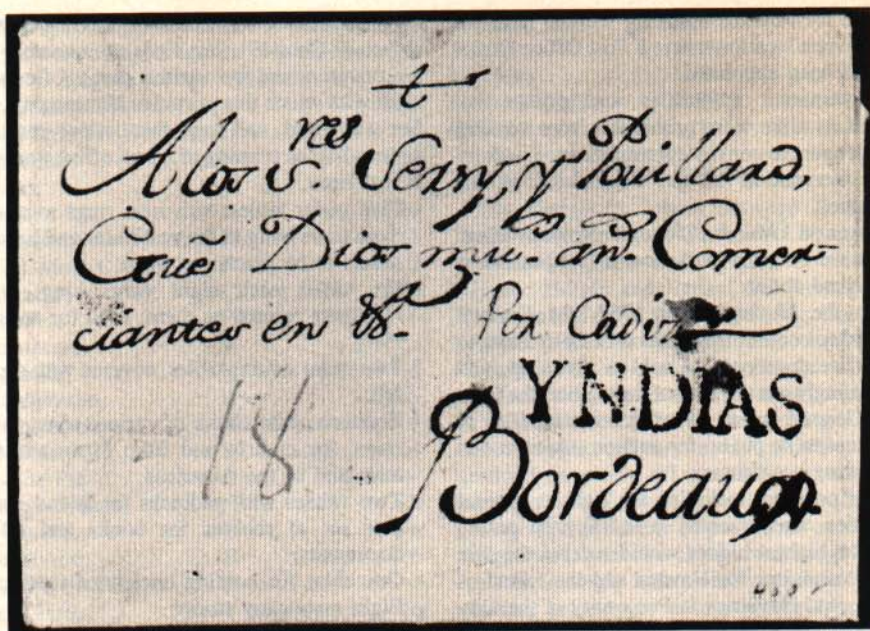 A los S.res Verny, y Pouillard,
Gūe Dios mu.s an.s Comer-
ciantes en
Por Cadiz
YNDIAS
18
Bordeaux.